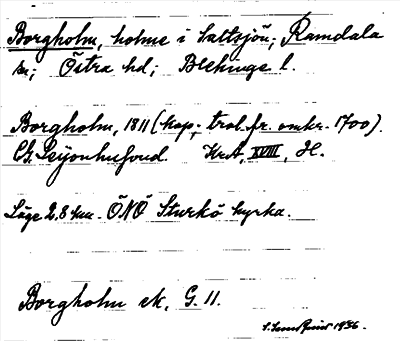 Borgholm, holme i Saltsjön; Ramdala
sn; Östra hd; Blekinge l.
Borgholm, 1811 (kop; trol. fr. omkr. 1700).
CG. Leijonhufvud. Kr.A, XVIII, H.
Läge 2,8 km. ÖNÖ Sturkö kyrka.
Borgholm ek. G. 11.
1936.